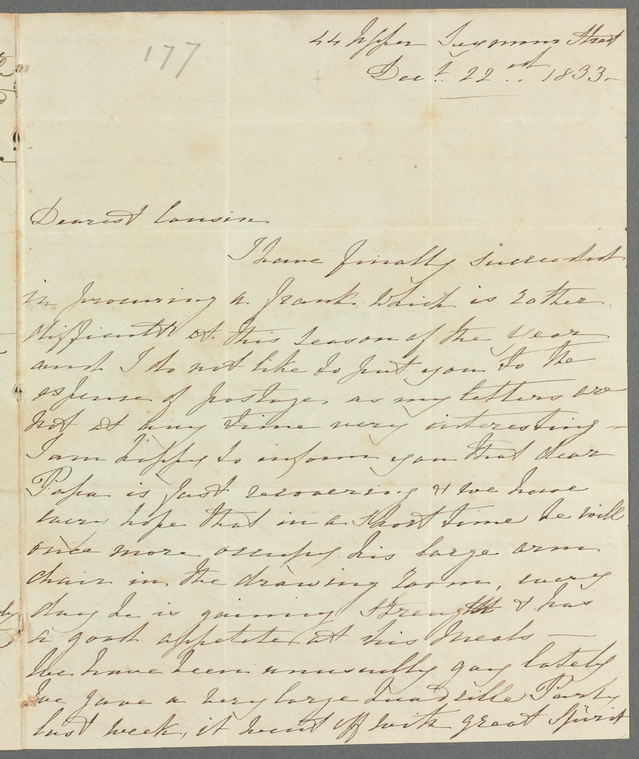 177
44 Upper Seymour Street
Decr. 22nd. 1833-
Dearest Cousin
I have finally succeeded
in procuring a frank which is rather
difficult at this season of the year
and I do not like to put you to the
expense of postage, as my letters are
not at any time very interesting -
I am happy to inform you that dear
Papa is fast recovering & we have
every hope that in a short time he will
once more occupy his large arm
chair in the drawing room, every
day he is gaining strength & has
a good appetite at his meals -
We have been unusually gay lately
We gave a very large Quadrille Party
last week, it went off with great spirit